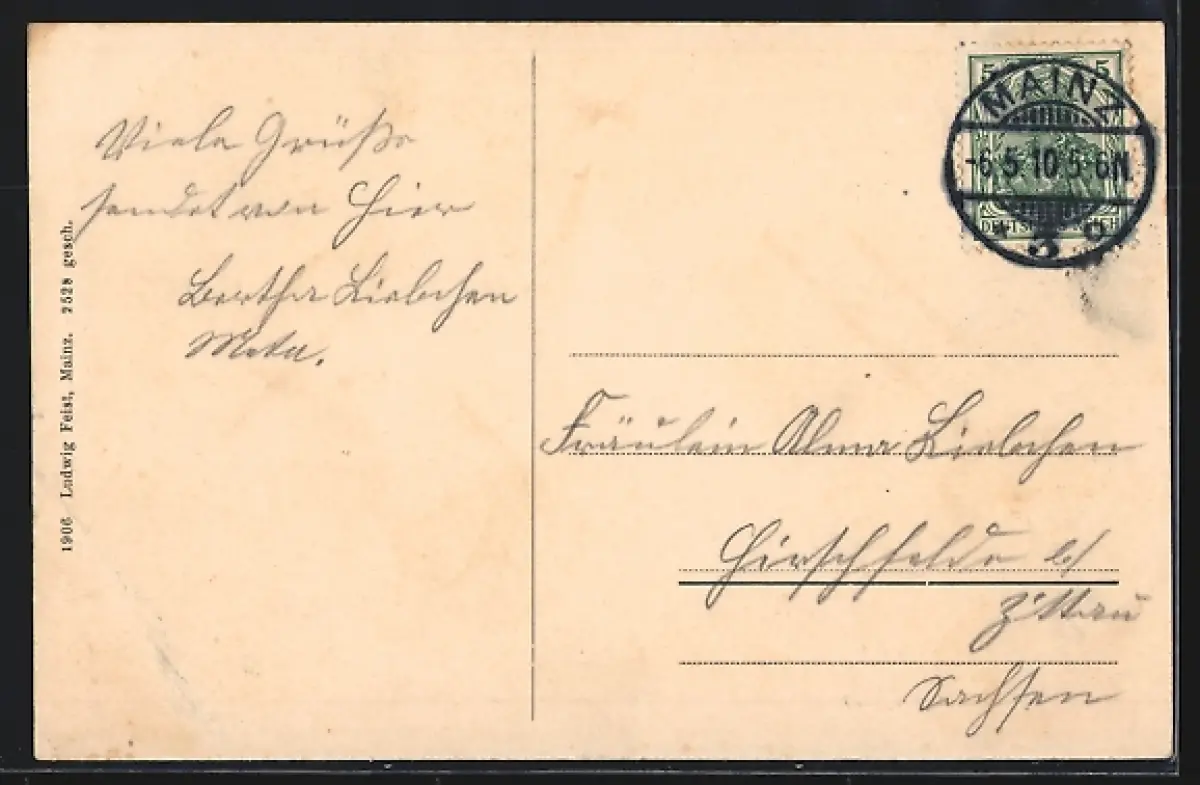 Viele Grüße
sendet von hier
Bertha Liebchen
Meta.
1906 Ludwig Feist, Mainz. 2528 gesch.
5 5
MAINZ
-6.5.10 5-6N.
* 3 c
DEUTSCHES REICH
Fräulein Alma Liebchen
Hirschfelde b/
Zittau
Sachsen